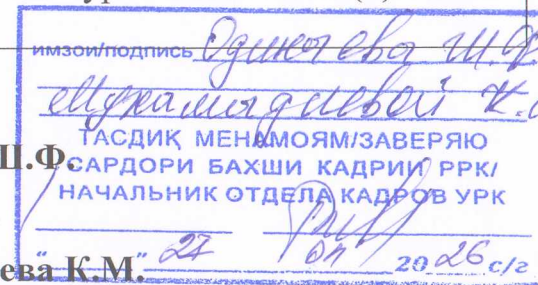 имзои/подпись Одинаева Ш.Ф
Мухамадиевой К.
ТАСДИҚ МЕНАМОЯМ/ЗАВЕРЯЮ
Ш.Ф. САРДОРИ БАХШИ КАДРИИ РРК/
НАЧАЛЬНИК ОТДЕЛА КАДРОВ УРК
ева К.М. " 27 20 26 с/г